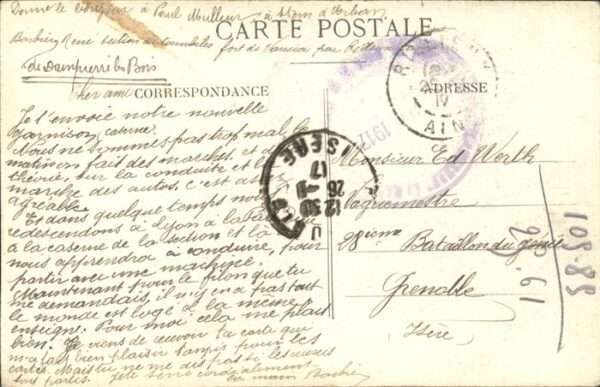 Donne le bonjour à Paul Mulleur, à
CARTE POSTALE
Barbier René section d'automobiles fort de Vancia par Rillieux
de Dampierre les Bois
Cher ami
CORRESPONDANCE
ADRESSE
Je t'envoie notre nouvelle
garnison, caserne.
Nous ne sommes pas trop mal, le
matin on fait des marches, et de la
théorie, sur la conduite et la
marche des autos, c'est assez
agréable.
Et dans quelque temps nous
redescendons à Lyon à
à la caserne de la section et là
nous apprendrons à conduire, pour
partir avec une machine.
Maintenant pour le filon que tu
me demandais, il n'y en a pas tout
le monde est logé à la même
enseigne. Pour moi cela me plaît
bien. Je viens de recevoir ta carte que
m'a fait bien plaisir
cartes. Mais tu ne me dis pas si les
sont partis. Je te serre cordialement
la main Barbier
Monsieur Ed Werth
28ième Bataillon du génie
Grenoble
Isère
ISERE
26 -6
17
12 30
AIN
1917
108.89
29.61